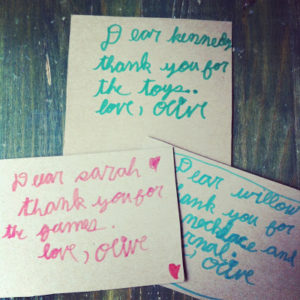 Dear kennedy
thank you for
the toys..
love, Olive
Dear sarah
thank you for
the games.
love, Olive
Dear willow
hank you for
necklace and
rnal.
, Olive